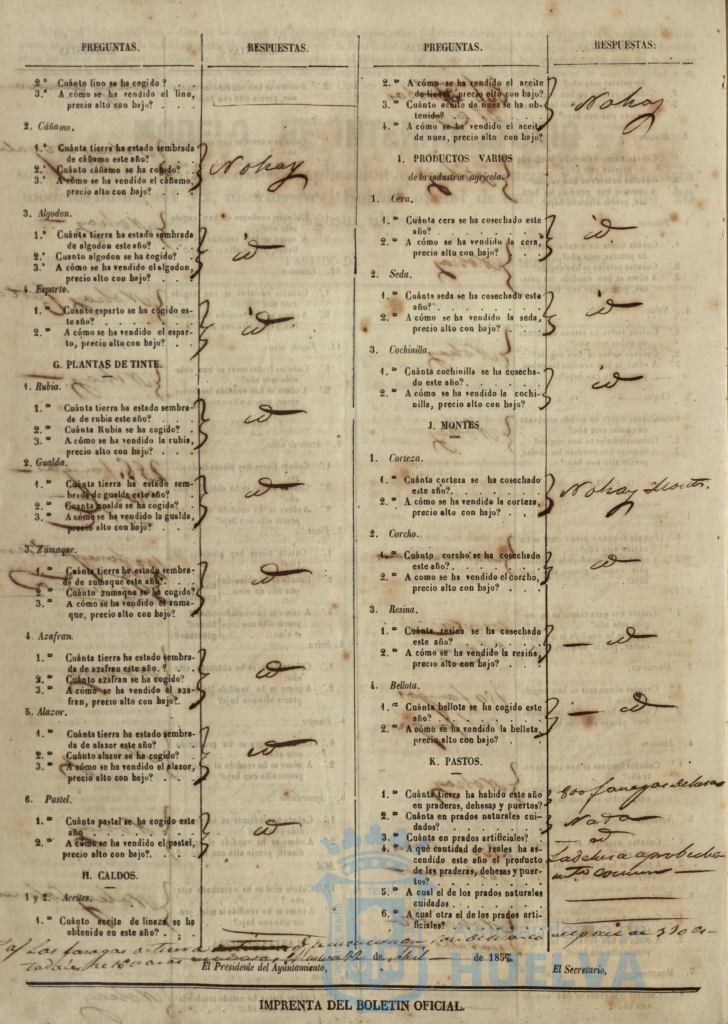 PREGUNTAS.
RESPUESTAS.
2.ª Cuánto lino se ha cogido?
3.ª A cómo se ha vendido el lino,
precio alto con bajo?
2. Cáñamo.
1.ª Cuánta tierra ha estado sembrada
de cáñamo este año?
2.ª Cuánto cáñamo se ha cogido?
3.ª A cómo se ha vendido el cáñamo,
precio alto con bajo?
No hay
3. Algodon.
1.ª Cuánta tierra ha estado sembrada
de algodon este año?
2.ª Cuanto algodon se ha cogido?
3.ª A cómo se ha vendido el algodon,
precio alto con bajo?
id
4. Esparto.
1.ª Cuánto esparto se ha cogido es-
te año?
2.ª A cómo se ha vendido el espar-
to, precio alto con bajo?
id
G. PLANTAS DE TINTE.
1. Rubia.
1.ª Cuánta tierra ha estado sembra-
da de rubia este año?
2.ª Cuánta Rubia se ha cogido?
3.ª A cómo se ha vendido la rubia,
precio alto con bajo?
id
2. Gualda.
1.ª Cuánta tierra ha estado sem-
brada de gualda este año?
2.ª Cuanta gualda se ha cogido?
3.ª A cómo se ha vendido la gualda,
precio alto con bajo?
id
3. Zumaque.
1.ª Cuánta tierra ha estado sembra-
da de zumaque este año?
2.ª Cuánto zumaque se ha cogido?
3.ª A cómo se ha vendido el zuma-
que, precio alto con bajo?
id
4. Azafran.
1.ª Cuánta tierra ha estado sembra-
da de azafran este año.?
2.ª Cuánto azafran se ha cogido?
3.ª A cómo se ha vendido el aza-
fran, precio alto con bajo?
id
5. Alazor.
1.ª Cuánta tierra ha estado sembra-
da de alazor este año?
2.ª Cuánto alazor se ha cogido?
3.ª A cómo se ha vendido el alazor,
precio alto con bajo?
id
6. Pastel.
1.ª Cuánto pastel se ha cogido este
año
2.ª A cómo se ha vendido el pastel,
precio alto con bajo?
id
H. CALDOS.
1 y 2. Aceites.
1.ª Cuánto aceite de linaza se ha
obtenido en este año?
PREGUNTAS.
RESPUESTAS:
2.ª A cómo se ha vendido el aceite
de linaza, precio alto con bajo?
3.ª Cuánto aceite de nuez se ha ob-
tenido?
4.ª A cómo se ha vendido el aceite
de nuez, precio alto con bajo?
No hay
I. PRODUCTOS VARIOS
de la industria agrícola.
1. Cera.
1.ª Cuánta cera se ha cosechado este
año?
2.ª A cómo se ha vendido la cera,
precio alto con bajo?
id
2. Seda.
1.ª Cuánta seda se ha cosechado este
año?
2.ª A cómo se ha vendido la seda,
precio alto con bajo?
id
3. Cochinilla.
1.ª Cuánta cochinilla se ha cosecha-
do este año?
2.ª A cómo se ha vendido la cochi-
nilla, precio alto con bajo?
id
J. MONTES
1. Corteza.
1.ª Cuánta corteza se ha cosechado
este año?
2.ª A cómo se ha vendido la corteza,
precio alto con bajo?
No hay Montes.
2. Corcho.
1.ª Cuánto corcho se ha cosechado
este año?
2.ª A como se ha vendido el corcho,
precio alto con bajo?
id
3. Resina.
1.ª Cuánta resina se ha cosechado
este año?
2.ª A cómo se ha vendido la resina,
precio alto con bajo?
id
4. Bellota.
1.ª Cuánta bellota se ha cogido este
año?
2.ª A cómo se ha vendido la bellota,
precio alto con bajo?
id
K. PASTOS.
1.ª Cuánta tierra ha habido este año
en praderas, dehesas y puertos?
800 fanegas dehesas
2.ª Cuánta en prados naturales cui-
dados?
Nada
3.ª Cuánta en prados artificiales?
id
4.ª A qué cantidad de reales ha as-
cendido este año el producto
de las praderas, dehesas y puer-
tos?
La dehesa
comun
5.ª A cual el de los prados naturales
cuidados
6.ª A cual otra el de los prados arti-
ficiales?
Las fanegas de tierra
de Abril de 1857.
El Presidente del Ayuntamiento,
El Secretario,
IMPRENTA DEL BOLETIN OFICIAL.
HUELVA